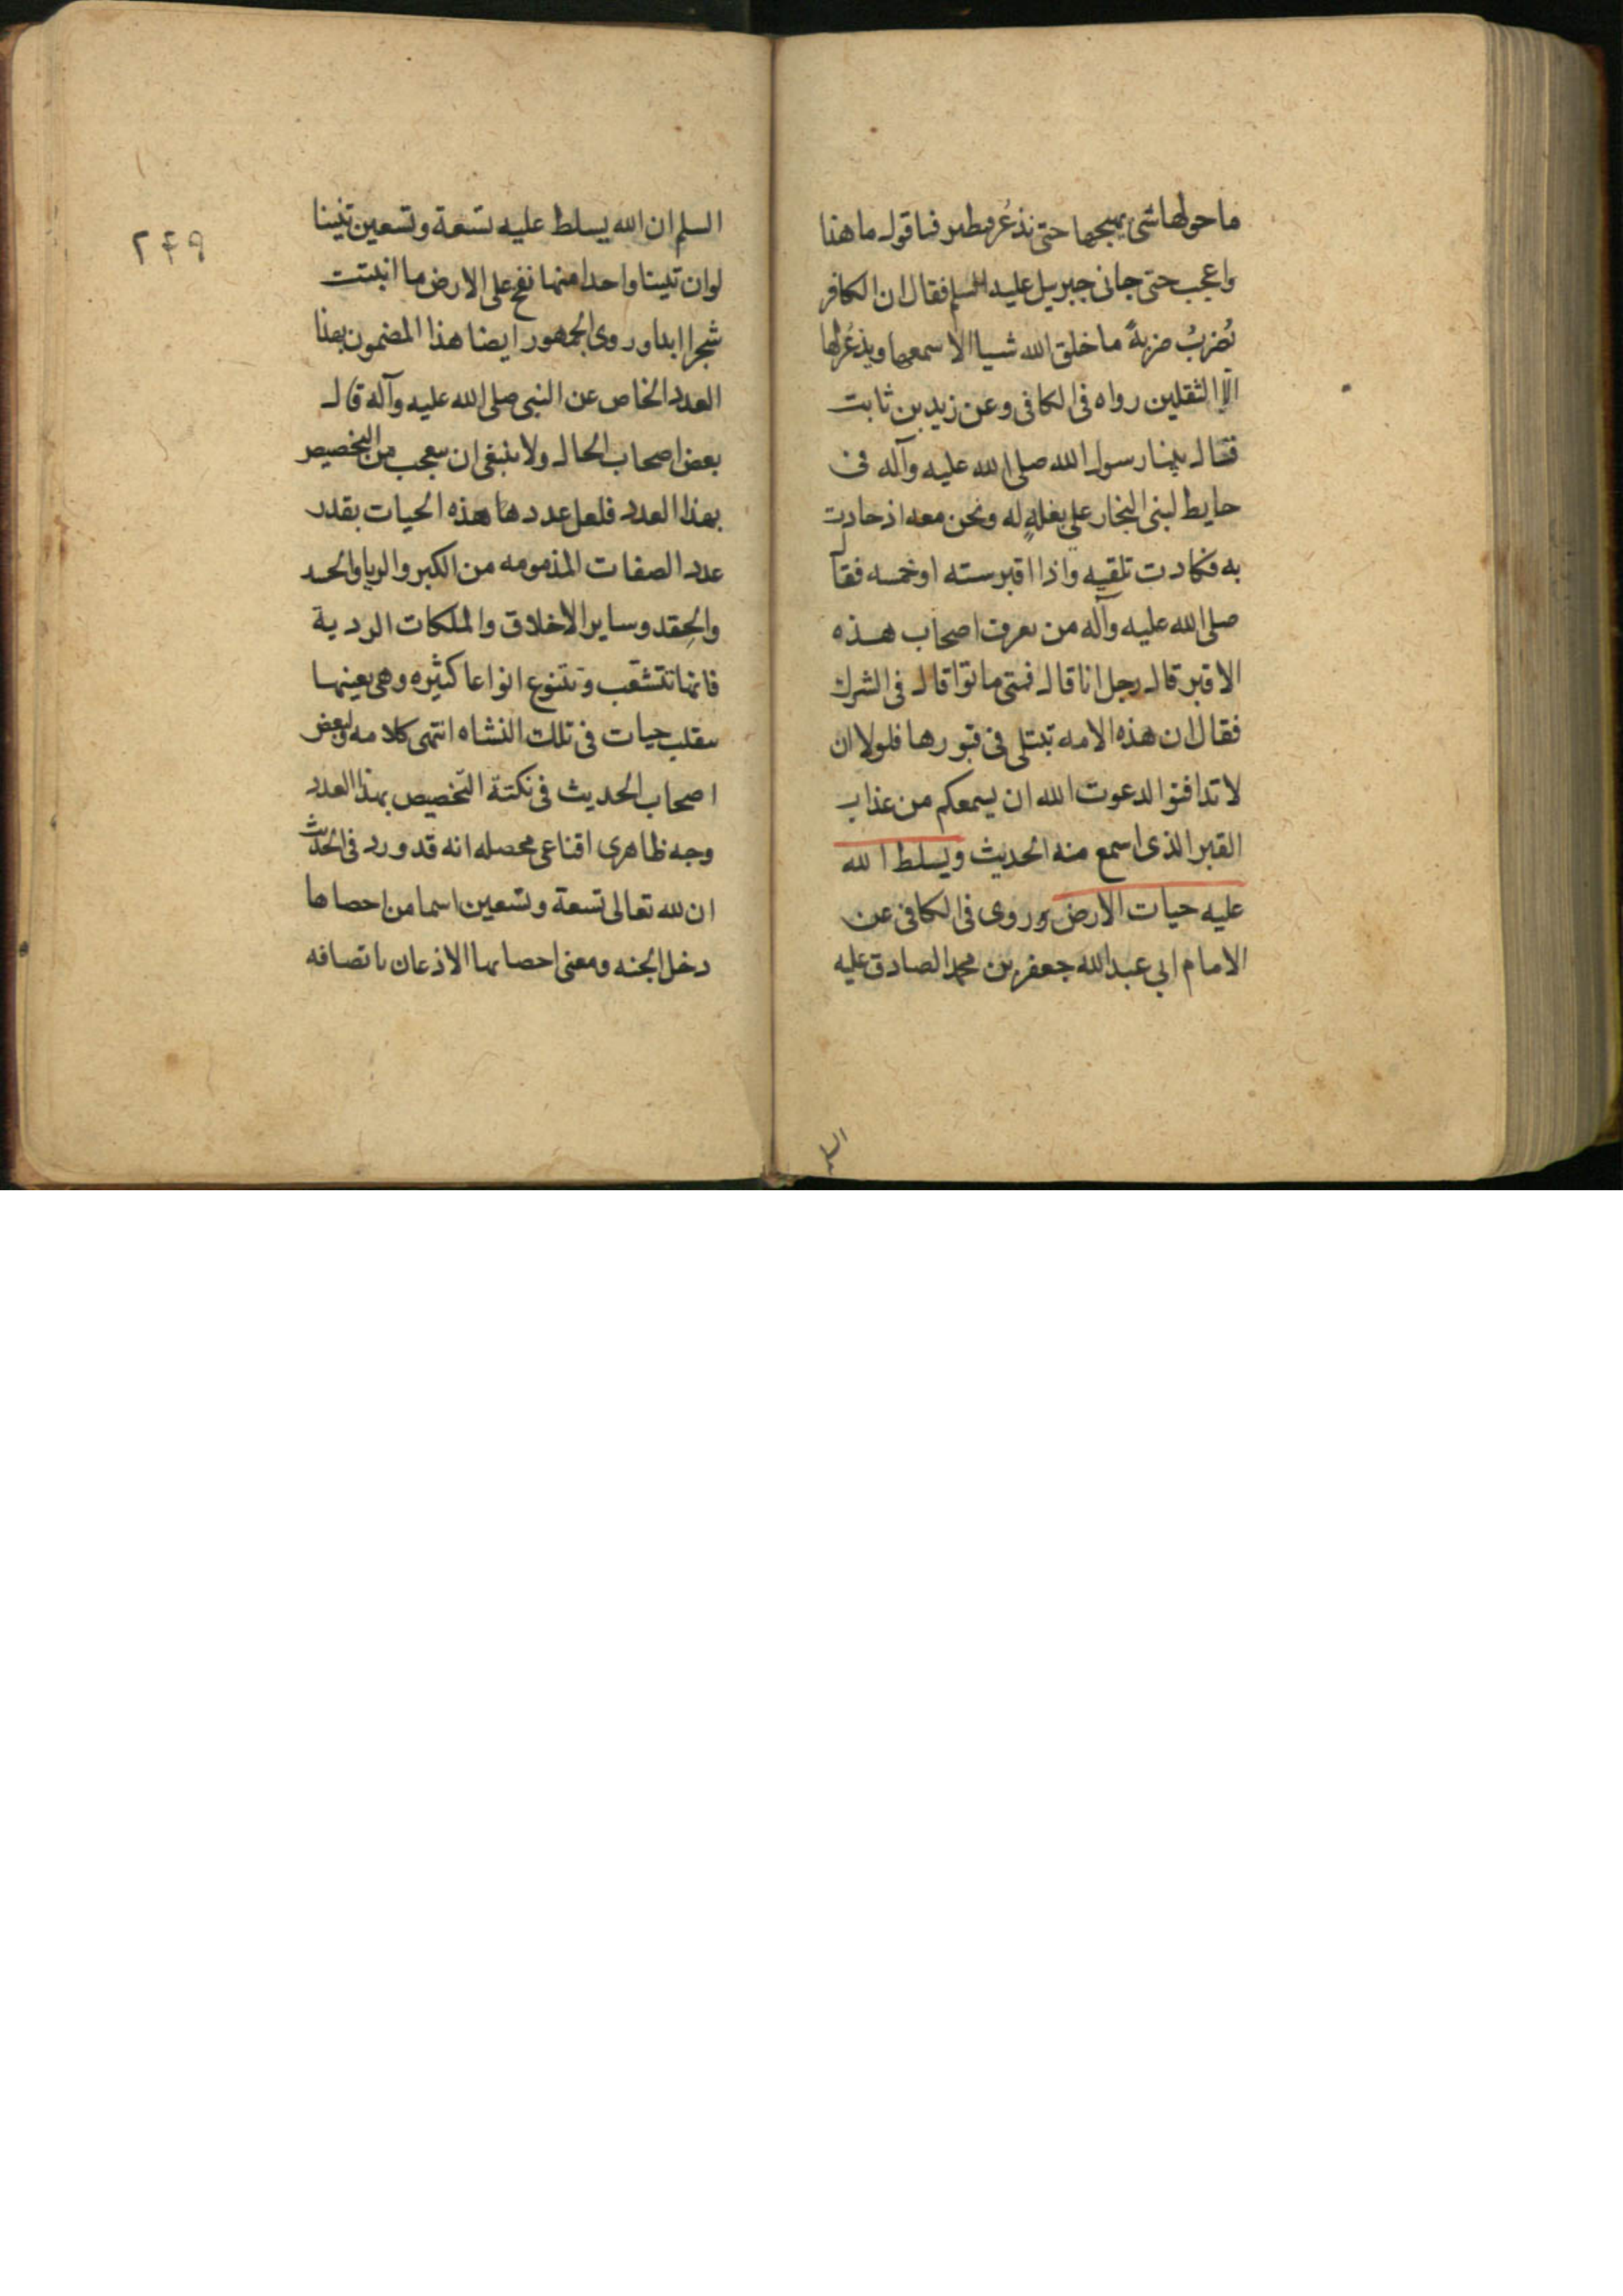 ما حولها شئ يهيجها حتى تذعر فتطير فاقول ما هذا
واعجب حتى جانى جبريل عليه السلم فقال ان الكافر
يُضربُ ضربةً ما خلق الله شيا الا سمعها ويذعُر لها
الا الثقلين رواه فى الكافى وعن زيد بن ثابت
فقال بينا رسول الله صلى الله عليه وآله فى
حايط لبنى النجار على بغلةٍ له ونحن معه اذ حادت
به فكادت تلقيه واذا اقبر سته او خمسه فقال
صلى الله عليه وآله من يعرف اصحاب هذه
الاقبر قال رجل انا قال فمتى ماتوا قال فى الشرك
فقال ان هذه الامه تبتلى فى قبورها فلولا ان
لا تدافنوا لدعوت الله ان يسمعكم من عذاب
القبر الذى اسمع منه الحديث ويسلط الله
عليه حيات الارض وروى فى الكافى عن
الامام ابي عبد الله جعفر بن محمد الصادق عليه
السلم
٢٤٩
السلم ان الله يسلط عليه تسعة وتسعين تنينا
لو ان تنينا واحدا منها نفخ على الارض ما انبتت
شجرا ابدا وروى الجمهور ايضا هذا المضمون بهذا
العدد الخاص عن النبى صلى الله عليه وآله قال
بعض اصحاب الحال ولا ينبغى ان يتعجب من التخصيص
بهذا العدد فلعل عدد هذه الحيات بقدر
عدد الصفات المذمومه من الكبر والريا والحسد
والحِقد وساير الاخلاق والملكات الردية
فانها تتشعّب وتتنوع انواعا كثيره وهى بعينها
تنقلب حيات فى تلك النشاه انتهى كلامه ولبعض
اصحاب الحديث فى نكتة التخصيص بهذا العدد
وجه ظاهرى اقناعى محصله انه قد ورد فى الحديث
ان لله تعالى تسعة وتسعين اسما من احصاها
دخل الجنه ومعنى احصايها الاذعان باتصافه